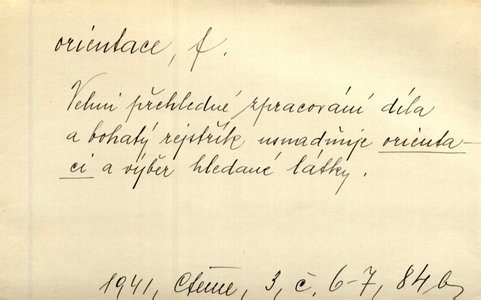 orientace, f.
Velmi přehledné zpracování díla
a bohatý rejstřík usnadňuje orienta-
ci a výběr hledané látky.
1941, Čteme, 3, č. 6-7, 84b